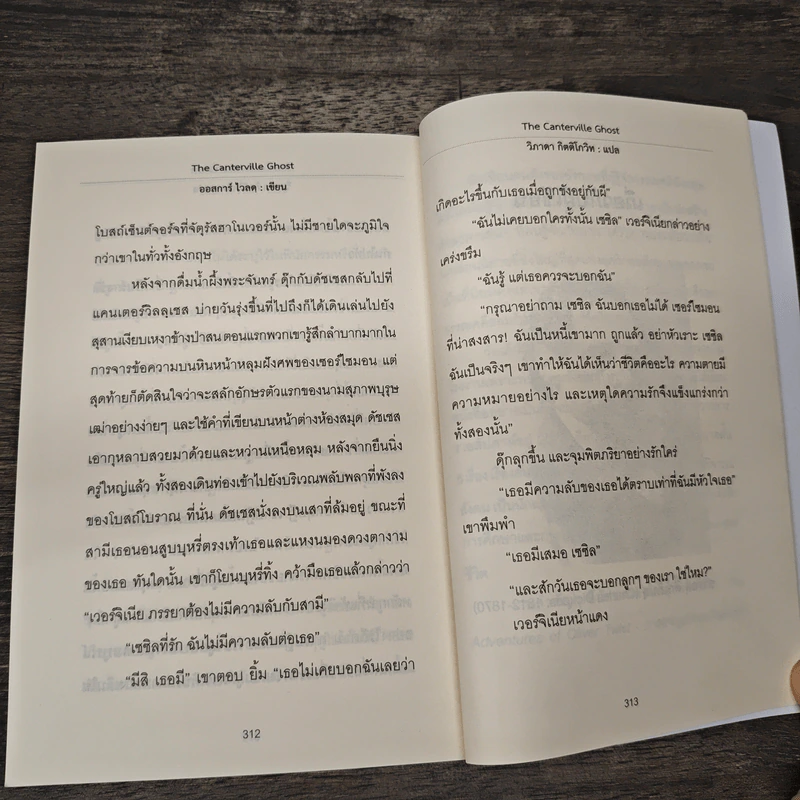 The Canterville Ghost
ออสการ์ ไวลด์ : เขียน
โบสถ์เซ็นต์จอร์จที่จัตุรัสฮาโนเวอร์นั้น ไม่มีชายใดจะภูมิใจ
กว่าเขาในทั่วทั้งอังกฤษ
หลังจากดื่มน้ำผึ้งพระจันทร์ ดุ๊กกับดัชเชสกลับไปที่
แคนเตอร์วิลลเชส บ่ายวันรุ่งขึ้นที่ไปถึงก็ได้เดินเล่นไปยัง
สุสานเงียบเหงาข้างป่าสน ตอนแรกพวกเขารู้สึกลำบากมากใน
การจารข้อความบนหินหน้าหลุมฝังศพของเซอร์ไซมอน แต่
สุดท้ายก็ตัดสินใจว่าจะสลักอักษรตัวแรกของนามสุภาพบุรุษ
เฒ่าอย่างง่ายๆ และใช้คำที่เขียนบนหน้าต่างห้องสมุด ดัชเชส
เอากุหลาบสวยมาด้วยและหว่านเหนือหลุม หลังจากยืนนิ่ง
ครู่ใหญ่แล้ว ทั้งสองเดินท่องเข้าไปยังบริเวณพลับพลาที่พังลง
ของโบสถ์โบราณ ที่นั่น ดัชเชสนั่งลงบนเสาที่ล้มอยู่ ขณะที่
สามีเธอนอนสูบบุหรี่ตรงเท้าเธอและแหงนมองดวงตางาม
ของเธอ ทันใดนั้น เขาก็โยนบุหรี่ทิ้ง คว้ามือเธอแล้วกล่าวว่า
“เวอร์จิเนีย ภรรยาต้องไม่มีความลับกับสามี”
“เซซิลที่รัก ฉันไม่มีความลับต่อเธอ”
“มีสิ เธอมี” เขาตอบ ยิ้ม “เธอไม่เคยบอกฉันเลยว่า
312
The Canterville Ghost
วิภาดา กิตติโกวิท : แปล
เกิดอะไรขึ้นกับเธอเมื่อถูกขังอยู่กับผี”
“ฉันไม่เคยบอกใครทั้งนั้น เซซิล” เวอร์จิเนียกล่าวอย่าง
เคร่งขรึม
“ฉันรู้ แต่เธอควรจะบอกฉัน”
“กรุณาอย่าถาม เซซิล ฉันบอกเธอไม่ได้ เซอร์ไซมอน
ที่น่าสงสาร! ฉันเป็นหนี้เขามาก ถูกแล้ว อย่าหัวเราะ เซซิล
ฉันเป็นจริงๆ เขาทำให้ฉันได้เห็นว่าชีวิตคืออะไร ความตายมี
ความหมายอย่างไร และเหตุใดความรักจึงแข็งแกร่งกว่า
ทั้งสองนั้น”
ดุ๊กลุกขึ้น และจุมพิตภริยาอย่างรักใคร่
“เธอมีความลับของเธอได้ตราบเท่าที่ฉันมีหัวใจเธอ”
เขาพึมพำ
“เธอมีเสมอ เซซิล”
“และสักวันเธอจะบอกลูกๆ ของเรา ใช่ไหม?”
เวอร์จิเนียหน้าแดง
313